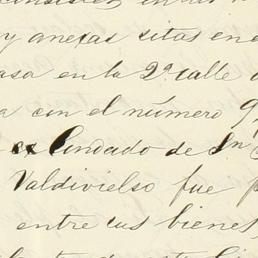 y anexas sitas en e
asa en la 2ª calle
a con el número 9
ex Condado de Sn
Valdivielso fue p
entre cus bienes